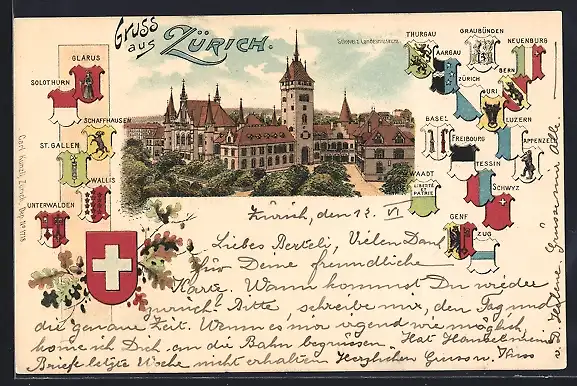 Gruss
aus
ZÜRICH.
Schweiz. Landesmuseum.
GLARUS
SOLOTHURN
SCHAFFHAUSEN
ST. GALLEN
WALLIS
UNTERWALDEN
THURGAU
GRAUBÜNDEN
NEUENBURG
AARGAU
BERN
ZÜRICH
URI
LUZERN
BASEL
FREIBOURG
APPENZELL
TESSIN
WAADT
LIBERTÉ
ET
PATRIE
SCHWYZ
GENF
ZUG
Carl Künzli, Zürich. Dep. No
Zürich, den 13. VI
Liebes Berteli, Vielen Dank
für Deine freundliche
Karte. Wann kommst Du wieder
zurück? Bitte schreibe mir, den Tag und
die genaue Zeit. Wenn es mir irgend wie möglich,
komme ich Dich an die Bahn begrüssen. Hat
Briefe letzte Woche nicht erhalten Herzlichen Gruss u. Kuss
v. D. Helene. Grüsse mir Alle.